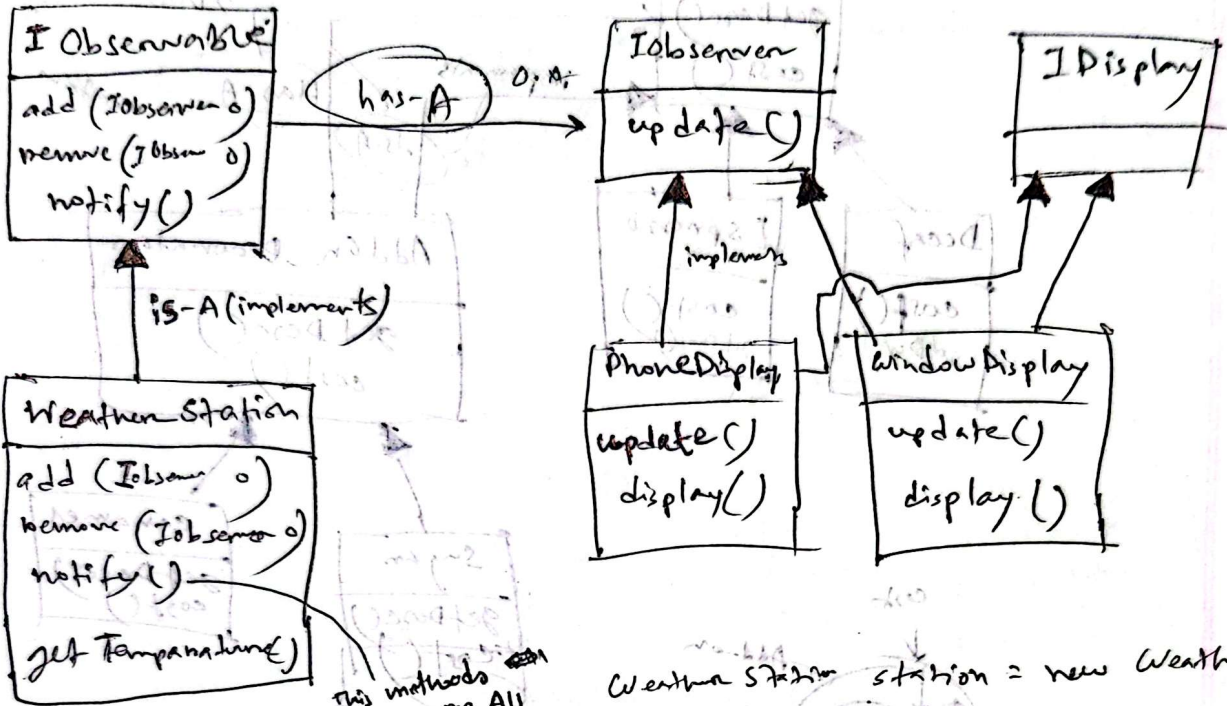 I Observable
add (Iobserver o)
remove (I Obser o)
notify()
has-A
Iobserver
update()
IDisplay
is-A (implements)
implements
Weather Station
add (Iobser o)
remove (Iobserver o)
notify()
get Temparature()
PhoneDisplay
update()
display()
windowDisplay
update()
display()
This methods
All
Weather Station station = new Weath